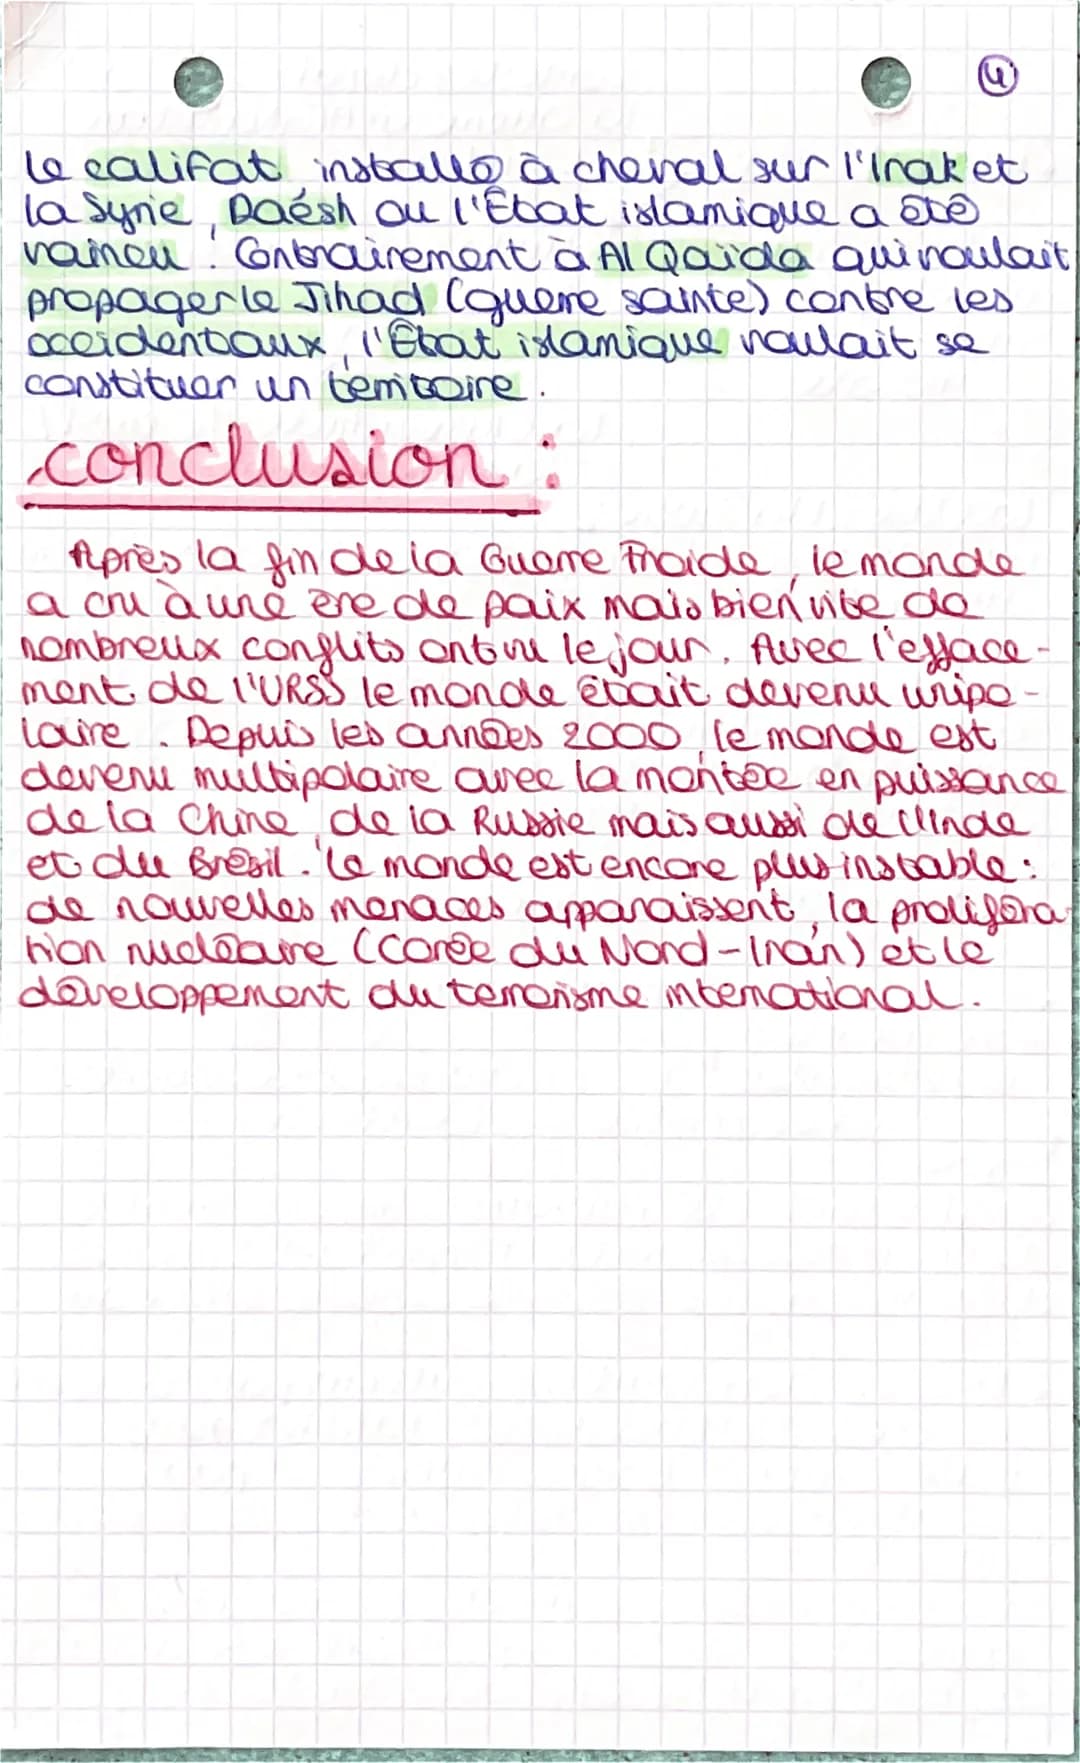 4
Le califat installé à cheval sur l'Irak et
la Syrie, Daésh ou l'État islamique a été
vaincu. Contrairement à Al Qaïda qui voulait
propager le Jihad (guerre sainte) contre les
occidentaux, l'État islamique voulait se
constituer un territoire.
conclusion :
Après la fin de la Guerre Froide, le monde
a cru à une ère de paix mais bien vite de
nombreux conflits ont vu le jour. Avec l'efface-
ment de l'URSS le monde était devenu unipo-
laire. Depuis les années 2000, le monde est
devenu multipolaire avec la montée en puissance
de la Chine, de la Russie mais aussi de l'Inde
et du Brésil. Le monde est encore plus instable :
de nouvelles menaces apparaissent, la prolifèra-
tion nucléaire (Corée du Nord - Iran) et le
développement du terrorisme international.